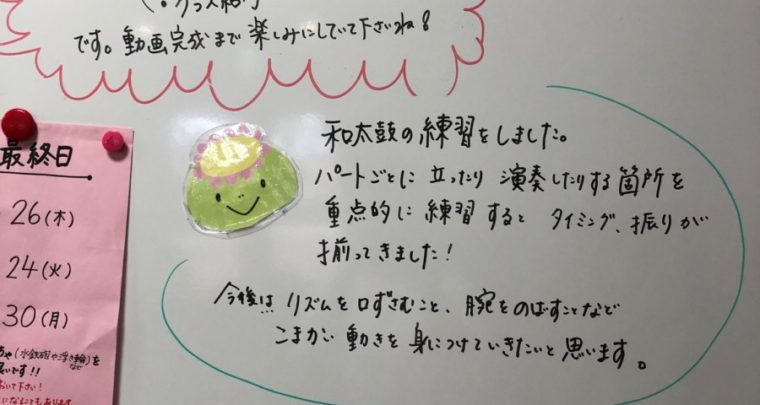 (・クラス紹介
です。動画完成まで楽しみにしていて下さいね!
和太鼓の練習をしました。
パートごとに立ったり演奏したりする箇所を
重点的に練習するとタイミング、振りが
揃ってきました!
今後はリズムを口ずさむこと、腕をのばすことなど
こまかい動きを身につけていきたいと思います。
最終日
26(木)
24(火)
30(月)
(水鉄砲や浮き輪)を
など
です!!
おいて下さい!